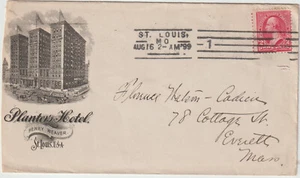 ST. LOUIS,
MO
AUG 16 2-AM '99
1
Planters Hotel.
HENRY WEAVER
ST. LOUIS, U.S.A.
78 Cottage St.
Everett
Mass.